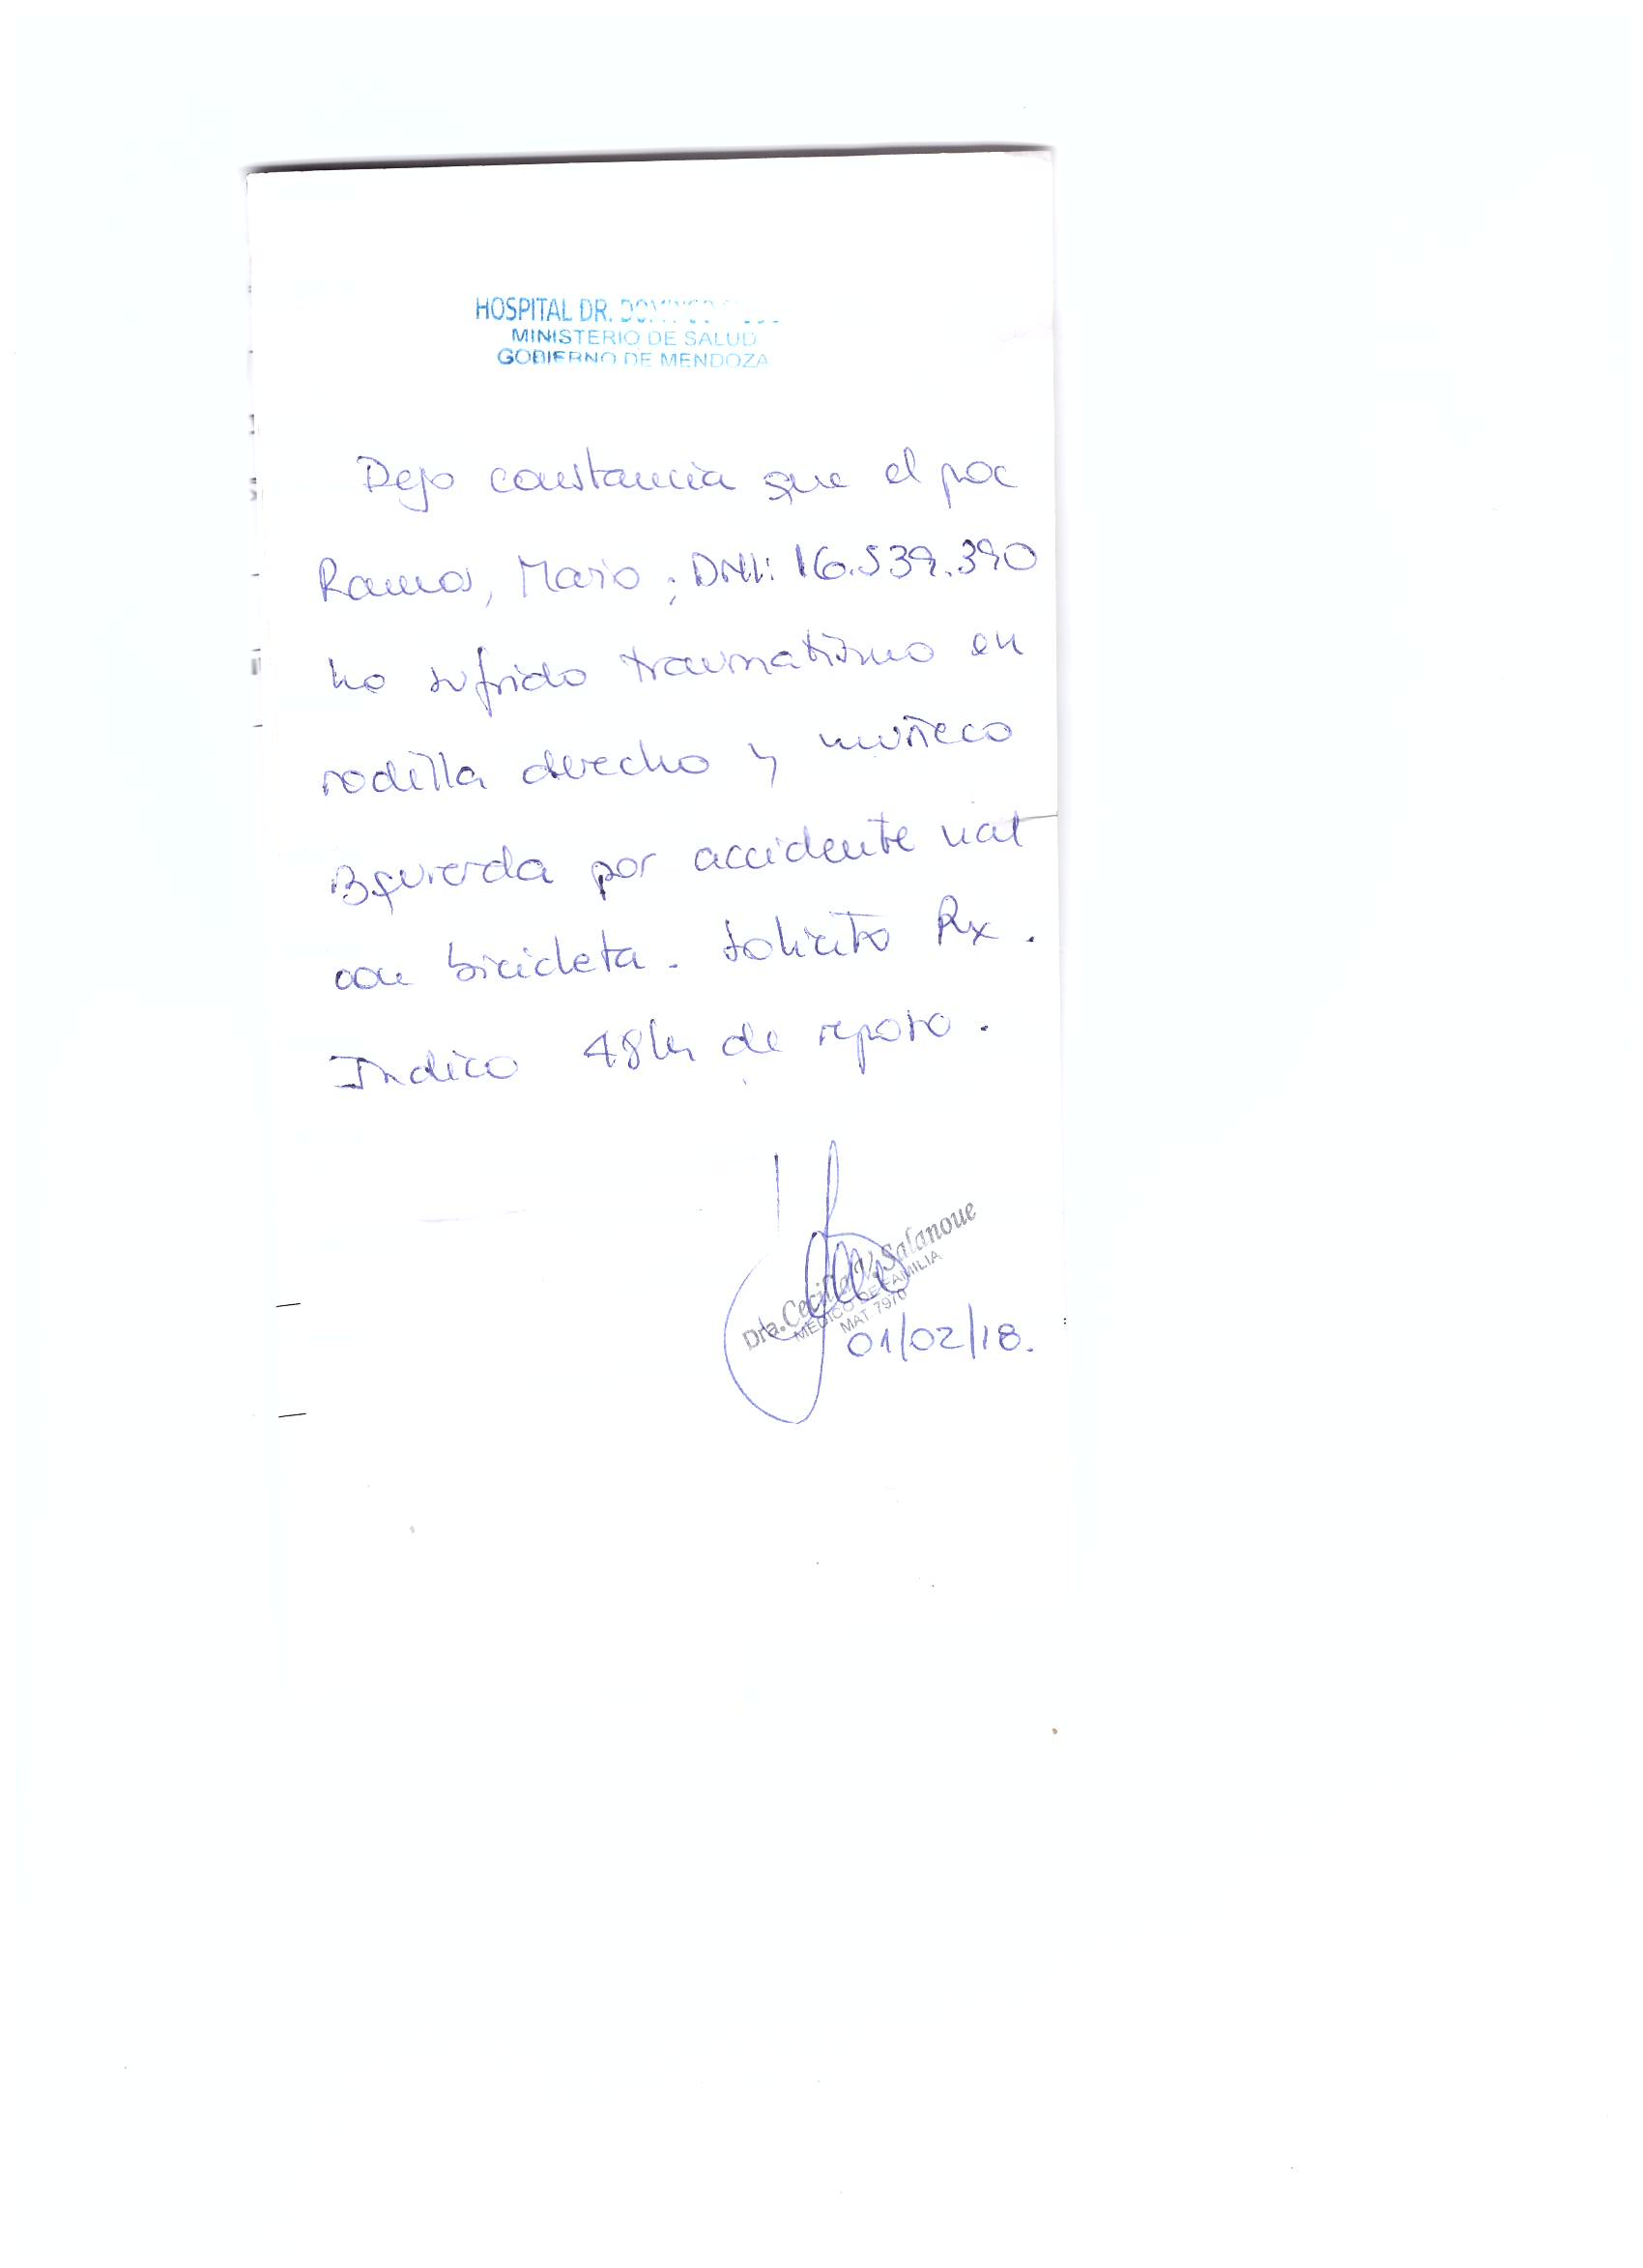 HOSPITAL DR.
MINISTERIO DE SALUD
GOBIERNO DE MENDOZA
Dejo constancia que el pac
Ramos, Mario ; DNI: 16.539.390
ha sufrido traumatismo en
rodilla derecha y muñeca
izquierda por accidente vial
con bicicleta. Solicito Rx.
Indico 48hs de reposo.
Dra. Cecilia V. Salanoue
MÉDICO DE FAMILIA
MAT 7970
01/02/18.